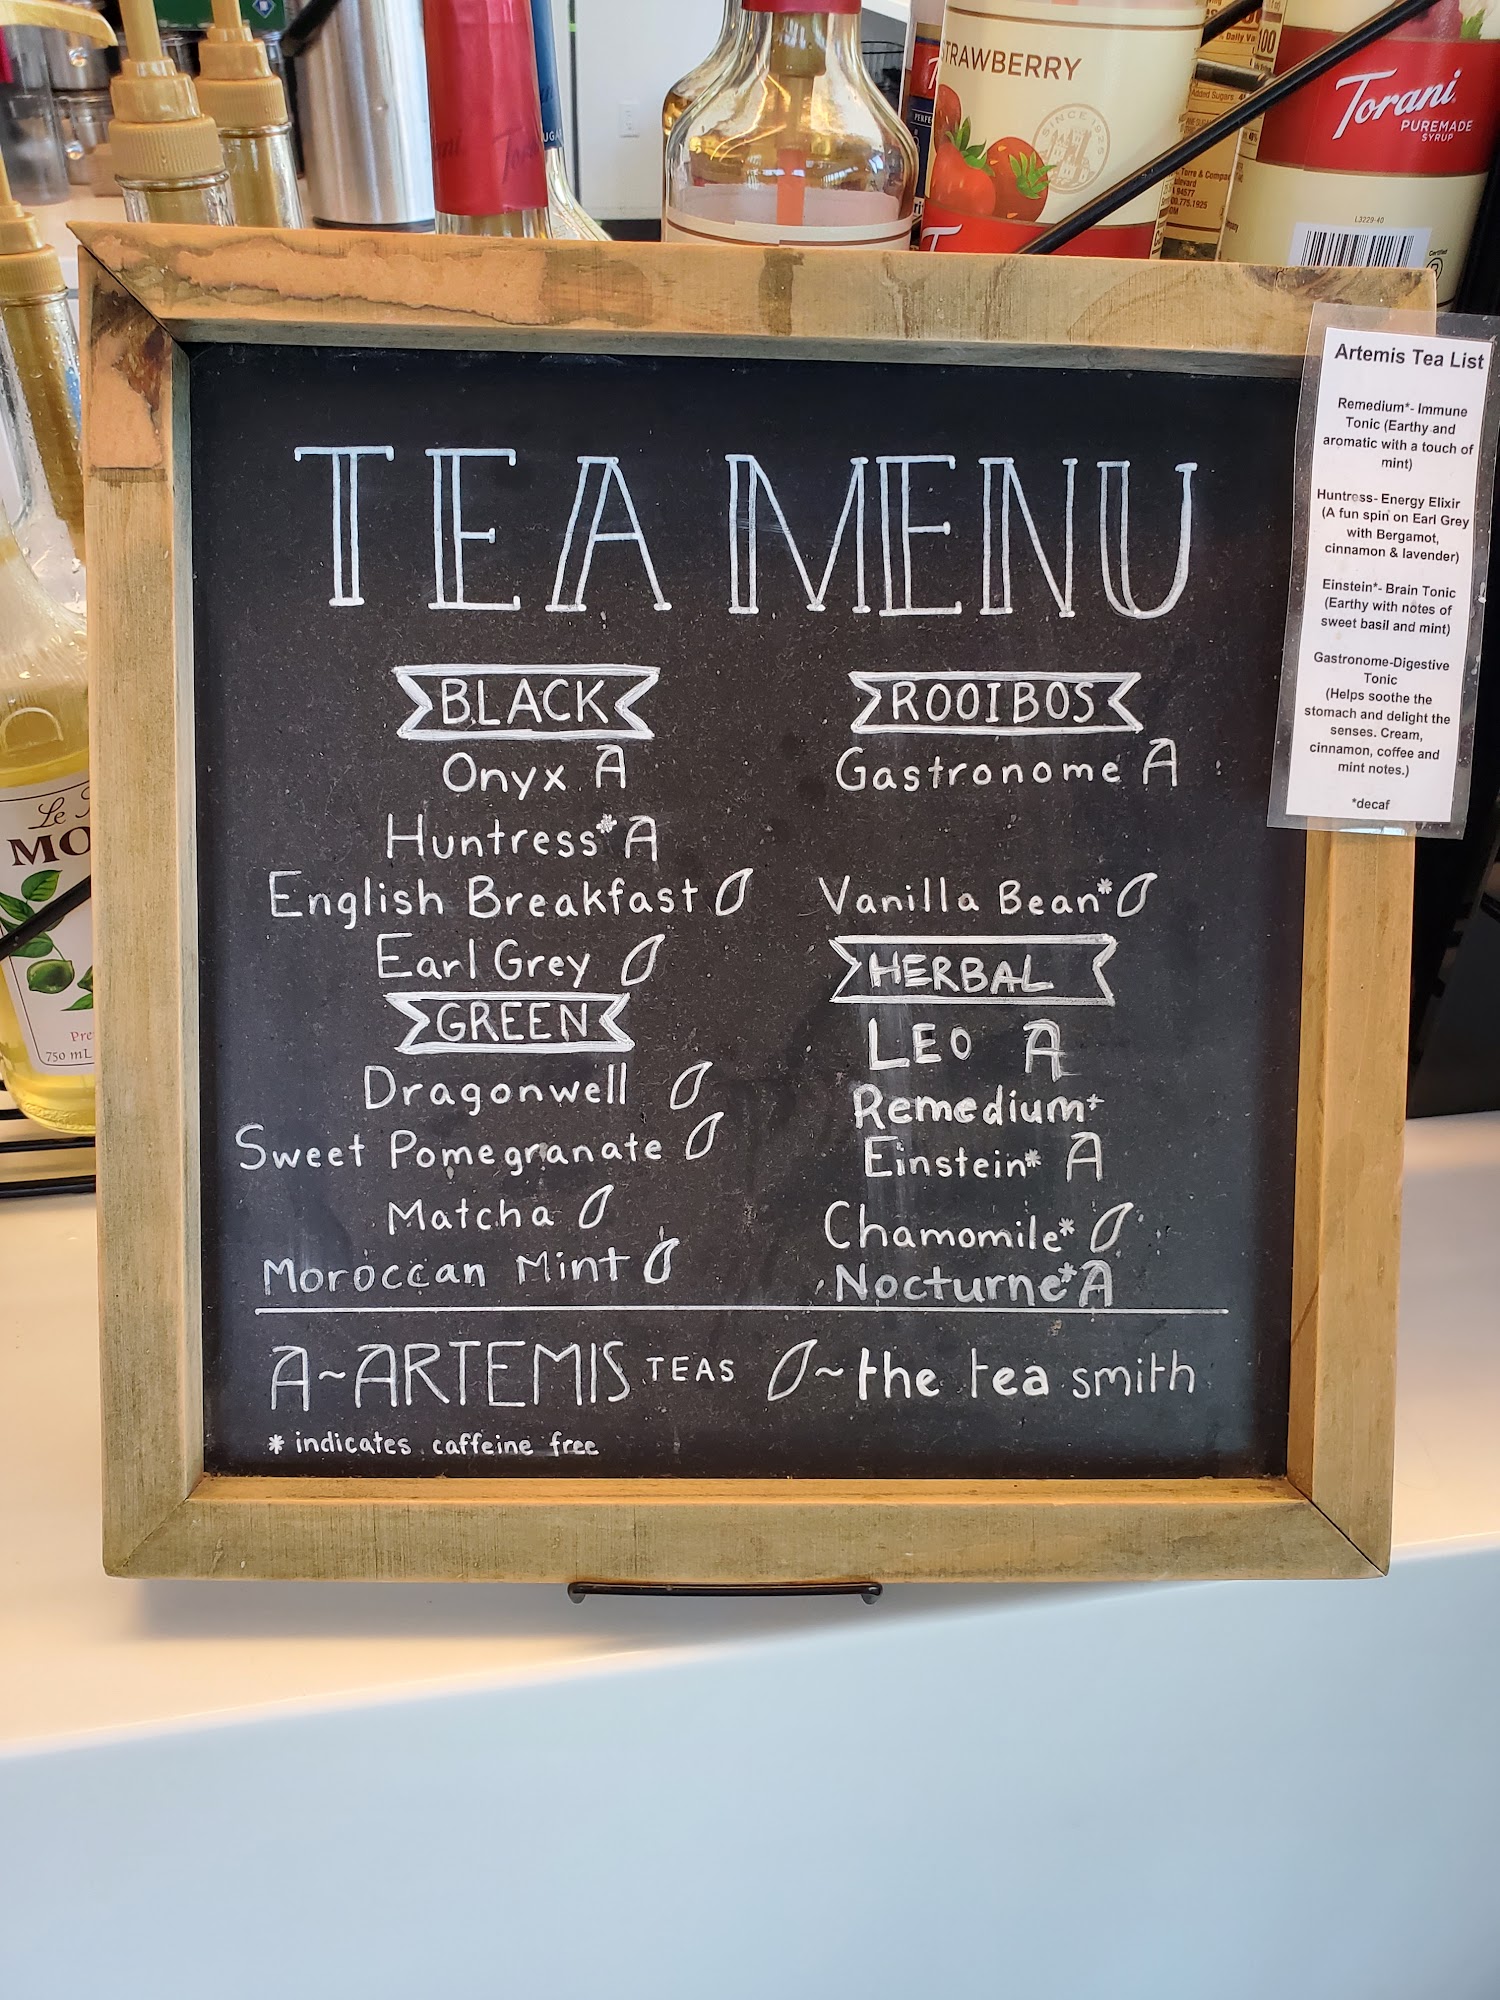 STRAWBERRY
SINCE 1925
Torani
PUREMADE
SYRUP
L3229-40
Certified
Artemis Tea List
Remedium*- Immune
Tonic (Earthy and
aromatic with a touch of
mint)
Huntress- Energy Elixir
(A fun spin on Earl Grey
with Bergamot,
cinnamon & lavender)
Einstein*- Brain Tonic
(Earthy with notes of
sweet basil and mint)
Gastronome-Digestive
Tonic
(Helps soothe the
stomach and delight the
senses. Cream,
cinnamon, coffee and
mint notes.)
*decaf
TEA MENU
BLACK
Onyx A
Huntress* A
English Breakfast
Earl Grey
GREEN
Dragonwell
Sweet Pomegranate
Matcha
Moroccan Mint
ROOIBOS
Gastronome A
Vanilla Bean*
HERBAL
LEO A
Remedium*
Einstein* A
Chamomile*
Nocturne* A
A~ARTEMIS TEAS ~the tea smith
* indicates caffeine free
Le
MO
750 mL